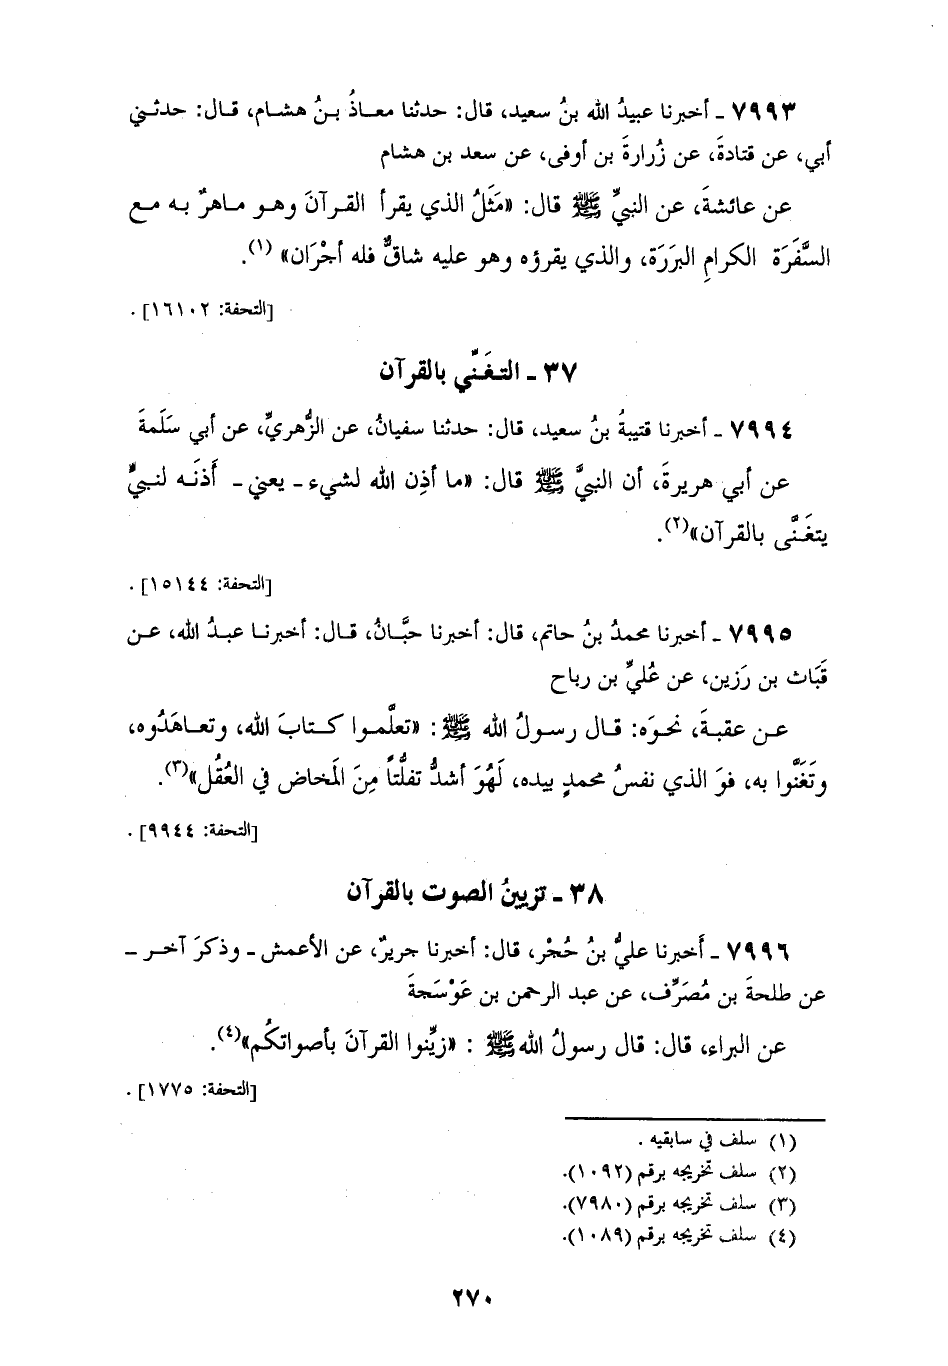 ٧٩٩٣ ـ أخبرنا عبيدُ الله بنُ سعيد، قال: حدثنا معاذُ بـنُ هشـام، قـال: حدثـني
أبي، عن قتادةَ، عن زُرارةَ بن أوفى، عن سعد بن هشام
عن عائشةَ، عن النبيِّ ﷺ قال: «مَثَلُ الذي يقرأ القـرآنَ وهـو مـاهرٌ بـه مـع
السَّفَرَة الكرامِ البرَرَة، والذي يقرؤه وهو عليه شاقٌّ فله أجْرَان» (١).
[التحفة: ١٦١٠٢] .
٣٧ ـ التـغَـنِّي بالقرآن
٧٩٩٤ ـ أخبرنا قتيبةُ بنُ سعيد، قال: حدثنا سفيانُ، عن الزُّهريِّ، عن أبي سَلَمةَ
عن أبي هريرةَ، أن النبيَّ ﷺ قال: «ما أذِن الله لشيء ـ يعني ـ أَذنَـه لنـبيٍّ
يتغَـنَّى بالقرآن»(٢).
[التحفة: ١٥١٤٤] .
٧٩٩٥ ـ أخبرنا محمدُ بنُ حاتم، قال: أخبرنا حبَّـانُ، قـال: أخبرنـا عبـدُ الله، عـن
قَبَاث بن رَزين، عن عُليِّ بن رباح
عـن عقبـةَ، نحـوَه: قـال رسـولُ الله ﷺ : «تعلَّمـوا كـتابَ الله، وتعـاهَدُوه،
وتَغَنَّوا به، فوَ الذي نفسُ محمدٍ بيده، لَهُوَ أشدُّ تفلُّتاً مِنَ المَخاض في العُقُل»(٣).
[التحفة: ٩٩٤٤] .
٣٨ ـ تزيينُ الصوت بالقرآن
٧٩٩٦ ـ أخبرنا عليُّ بنُ حُجْر، قال: أخبرنا جريرٌ، عن الأعمش ـ وذكرَ آخـر ـ
عن طلحةَ بن مُصَرِّف، عن عبد الرحمن بن عَوْسَجةَ
عن البراء، قال: قال رسولُ الله ﷺ : «زيِّنوا القرآنَ بأصواتكُم»(٤).
[التحفة: ١٧٧٥] .
(١) سلف في سابقيه .
(٢) سلف تخريجه برقم (١٠٩٢).
(٣) سلف تخريجه برقم (٧٩٨٠).
(٤) سلف تخريجه برقم (١٠٨٩).
٢٧٠